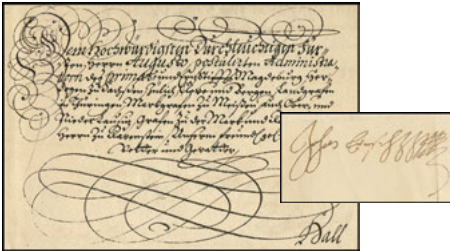 Dem Hochwürdigsten Durchleuchtigen Für-
sten, Herrn Augusto, postulirten Administra-
torn des Primat und Ertzstiffts Magdeburg Her-
zogen zu Sachsen Jülich Cleve und Bergen, Landgrafen
zu Thüringen Marggrafen zu Meißen, auch Ober- und
Nieder Lausitz, Grafen zu der Marck und
Herrn zu Ravenstein, Unserm freundtl
Vetter und Gevatter
Hall